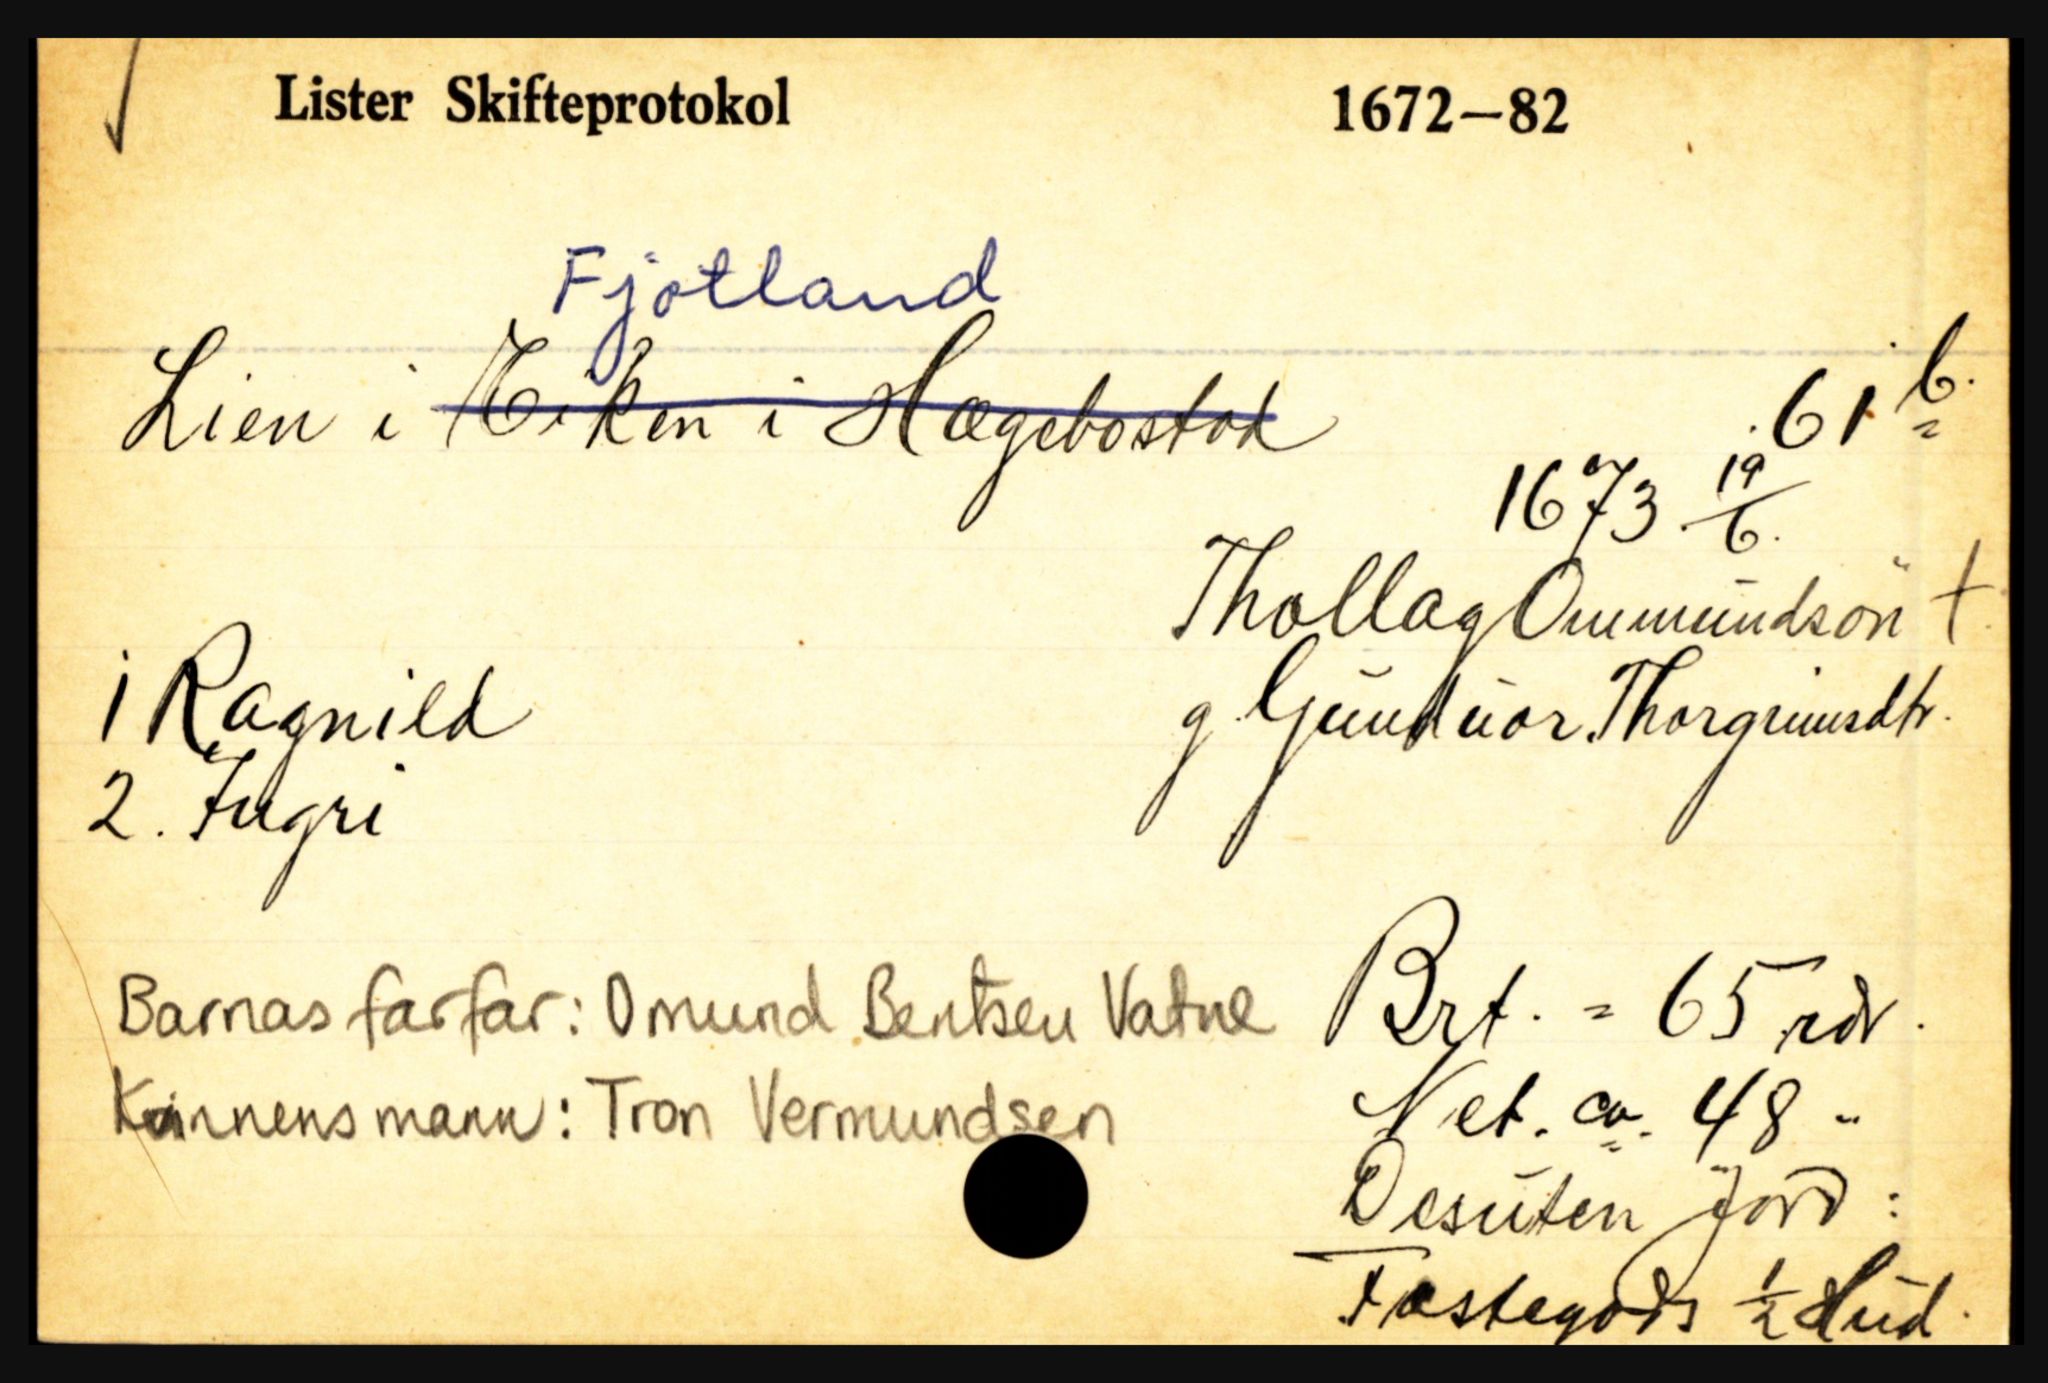 Lister Skifteprotokol 1672–82
Fjotland
Lien i Eiken i Hægebostad 61 b.
1673 19/6.
Thollag Ommundsøn †.
1 Ragnild g. Gunduor Thorgrimsdtr.
2. Ingri
Barnas farfar: Omund Bentsen Vatne Brt. = 65 rdr.
Kvinnens mann: Tron Vermundsen Net. ca. 48 "
Desuten Jord:
Fæstegods 1/2 Hud.